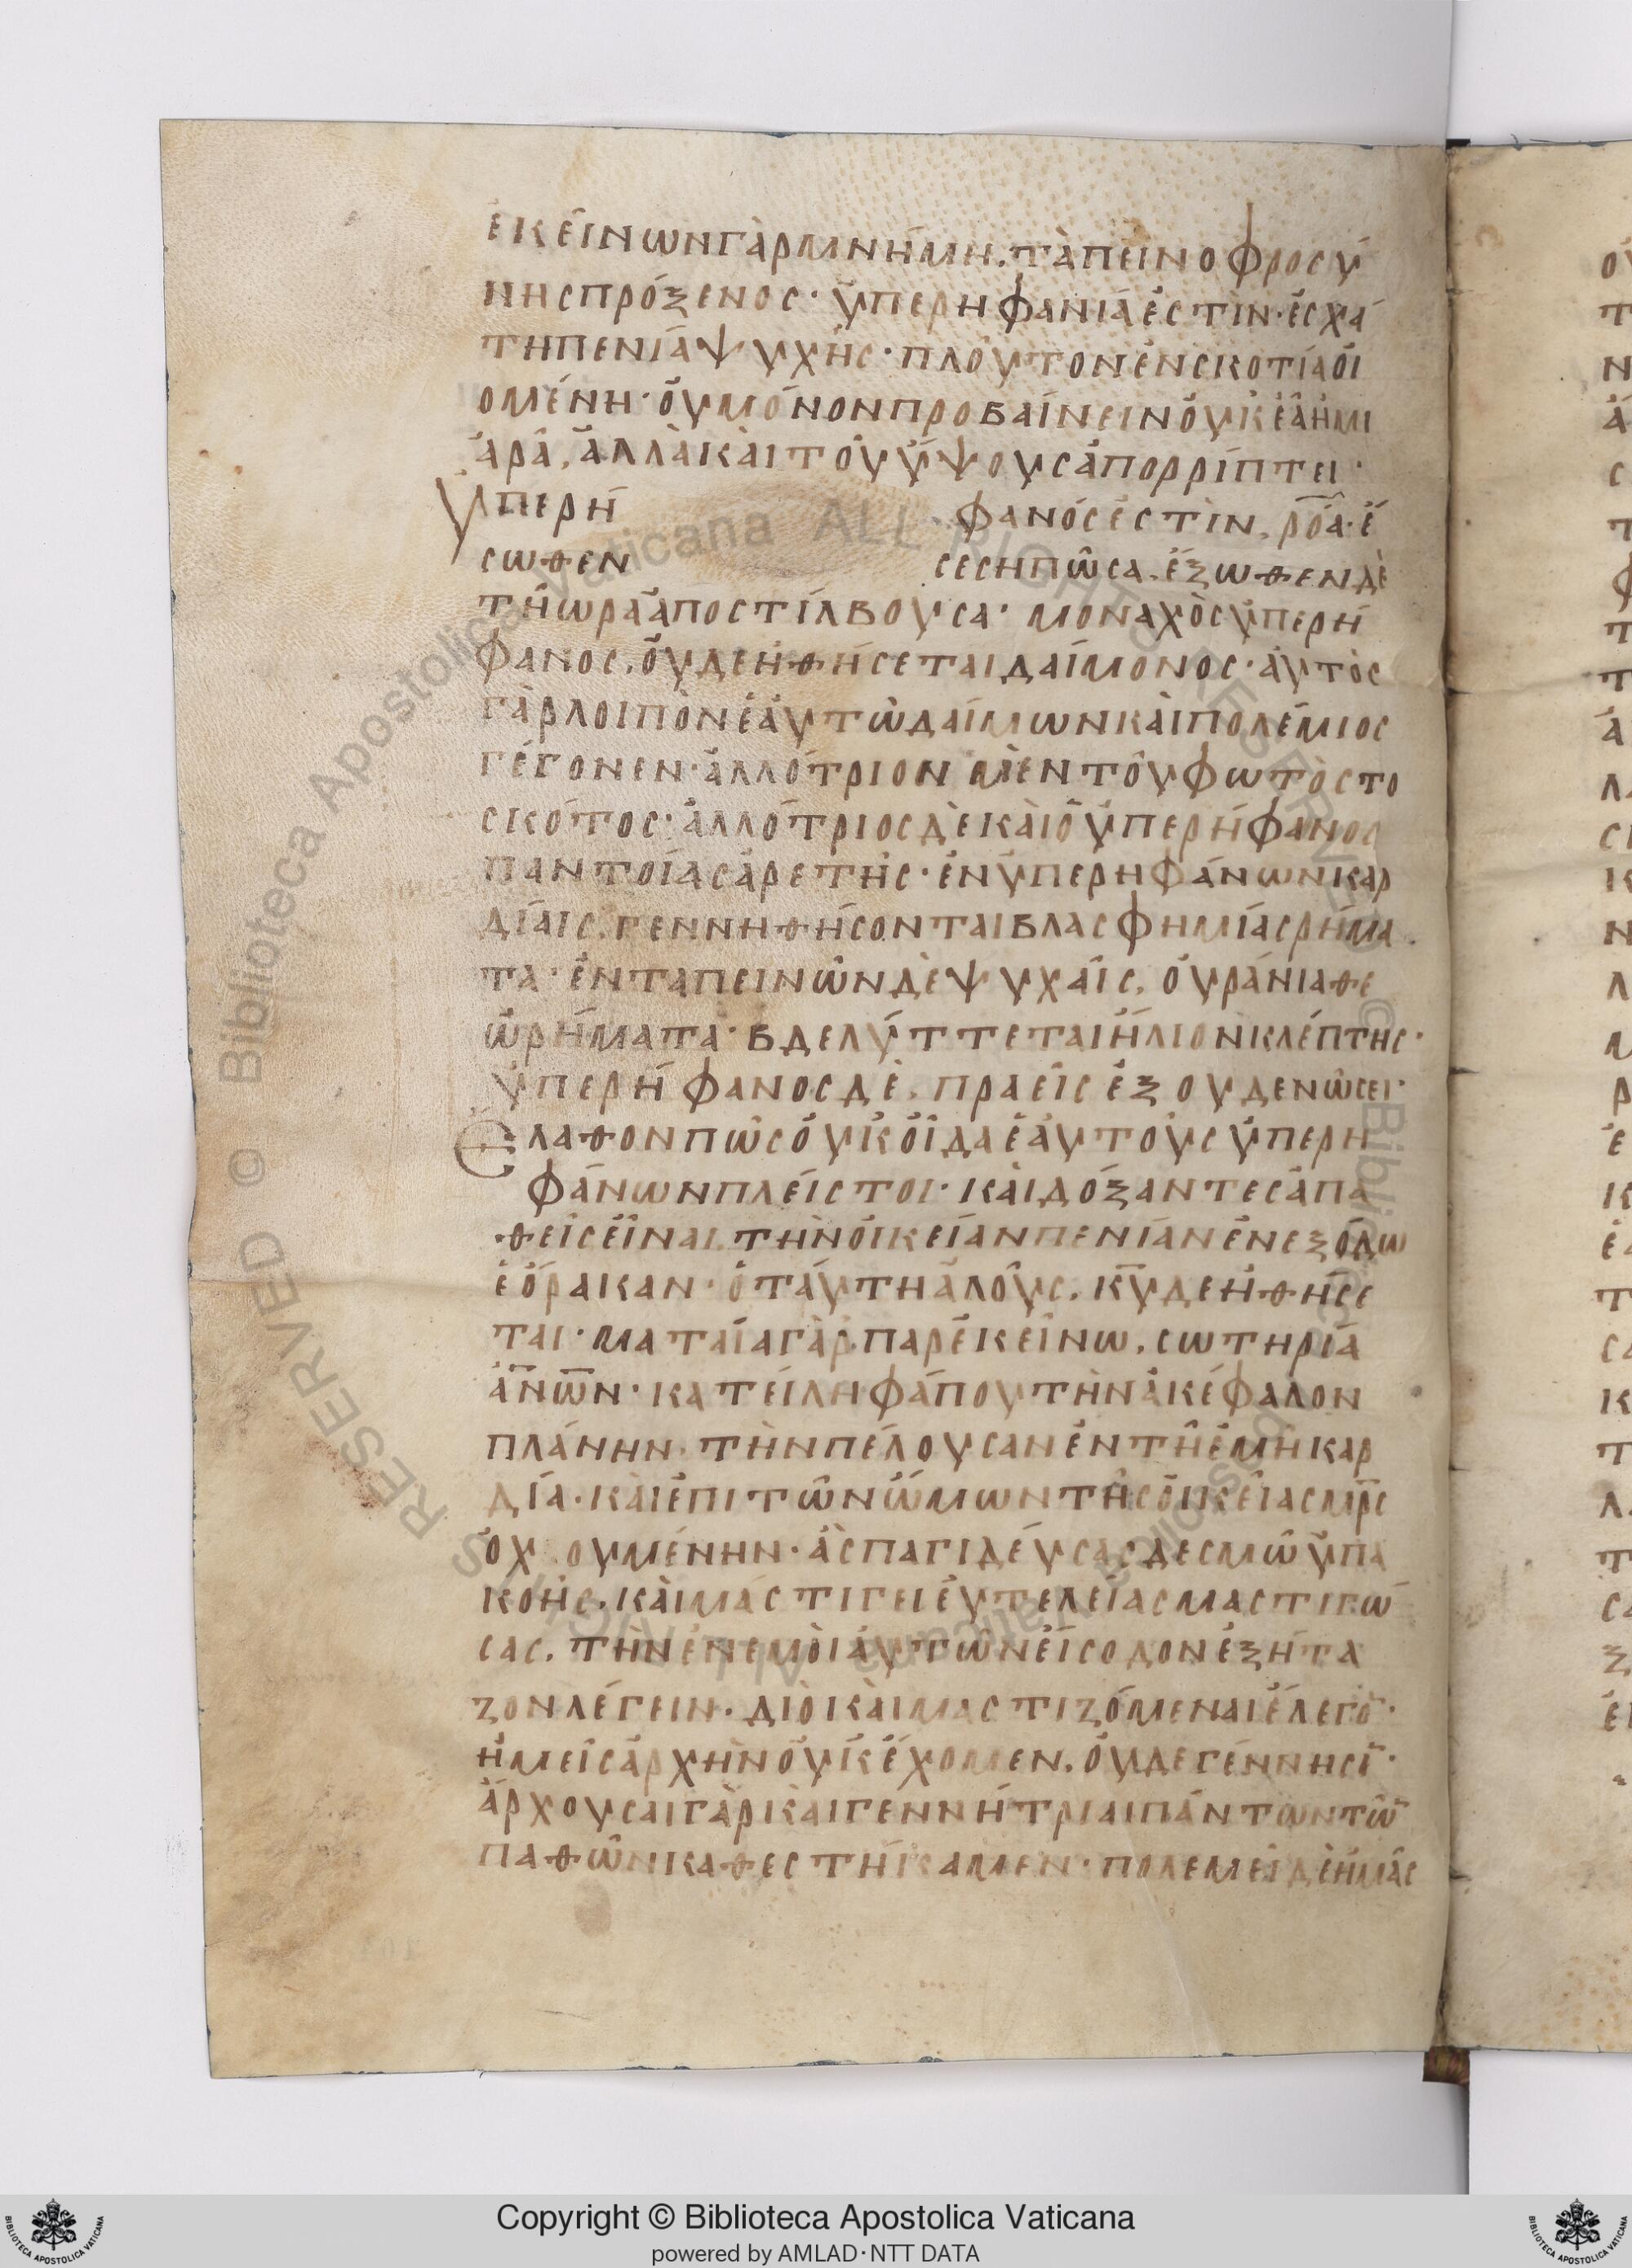 ἐκεῖνων γὰρ μνήμη. τὰπεινοφροσύ
νης πρόξενος· ὑπερηφανία ἐστὶν· ἐσχά
τη πενία ψυχῆς· πλοῦτον ἐν σκοτία οἰ
ομένη· οὐ μόνον προβαίνειν οὐκ ἐᾶ ἡ μι
ἀρᾶ, ἀλλὰ καὶ τοῦ ὕψους ἀπορρίπτει·
ὑπερή φανός ἐστὶν, ῥόα· ἔ
σωθεν σεσηπῶσα, ἔξωθεν δὲ
τῆ ὡρα ἀποστίλβουσα· μοναχὸς ὑπερή
φανος, οὐ δεηθήσεται δαίμονος· ἀυτὸς
γὰρ λοιπὸν ἑἀυτῶ δαίμων καὶ πολέμιος
γέγονεν· ἀλλότριον μὲν τοῦ φωτὸς το
σκότος· ἀλλότριος δὲ καὶ ὁ ὑπερήφανος
παντοίας ἀρετῆς· ἐν ὑπερηφάνων καρ
δίαις, γεννηθήσονται βλασφημίας ῥήμα
τα· ἐν ταπεινῶν δὲ ψυχαῖς, οὐράνια θε
ωρήματα· βδελύττεται ἥλιον κλέπτης·
ὑπερήφανος δὲ, πραεῖς ἐξουδενώσει·
Ελαθον πῶς οὐκ οἶδα ἑἀυτοὺς ὑπερη
φάνων πλείστοι· καὶ δόξαντες ἀπα
θεῖς εἶναι τὴν οἰκείαν πενίαν ἐν εξόδω
ἑόρακαν· ὁ τάυτη ἁλοῦς, κ̅υ̅ δεηθήσε
ται· ματαία γὰρ παρ ἐκείνω, σωτηρία
α̅ν̅ω̅ν̅· κατείληφά που τὴν ἀκέφαλον
πλάνην, τὴν πέλουσαν ἐν τῆ ἐμῆ καρ
δία· καὶ ἐπι τῶν ὤμων τῆς οἰκείας μ̅ρ̅ς̅
ὀχουμένην· ἀς παγιδέυσας δεσμῶ ὑπα
κοῆς, καὶ μάστιγει ἐυτελείας μαστιγώ
σας, τὴν ἐν εμοὶ ἀυτῶν εἴσοδον ἐξήτα
ζον λέγειν· διὸ καὶ μαστιζόμεναι ἔλεγο̅·
ἡμεῖς ἀρχὴν οὐκ ἔχομεν, οὐδε γέννησι̅·
ἄρχουσαι γὰρ καὶ γεννήτριαι πάντων τῶ̅
παθῶν καθεστήκαμεν· πολεμεῖ δὲ ἡμᾶς